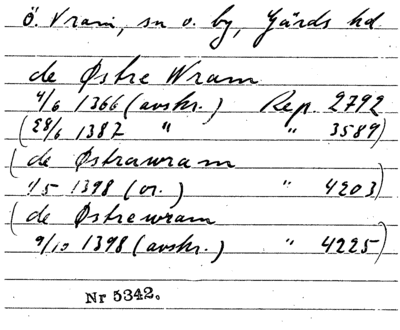 Ö. Vram, sn o. by, Gärds hd
de Østre Wram
4/6 1366 (avskr.) Rep. 2792
(28/6 1387 " " 3589)
(de Østrawram
1/5 1398 (or.) " 4203)
(de Østrewram
9/10 1398 (avskr.) " 4225)
Nr 5342.